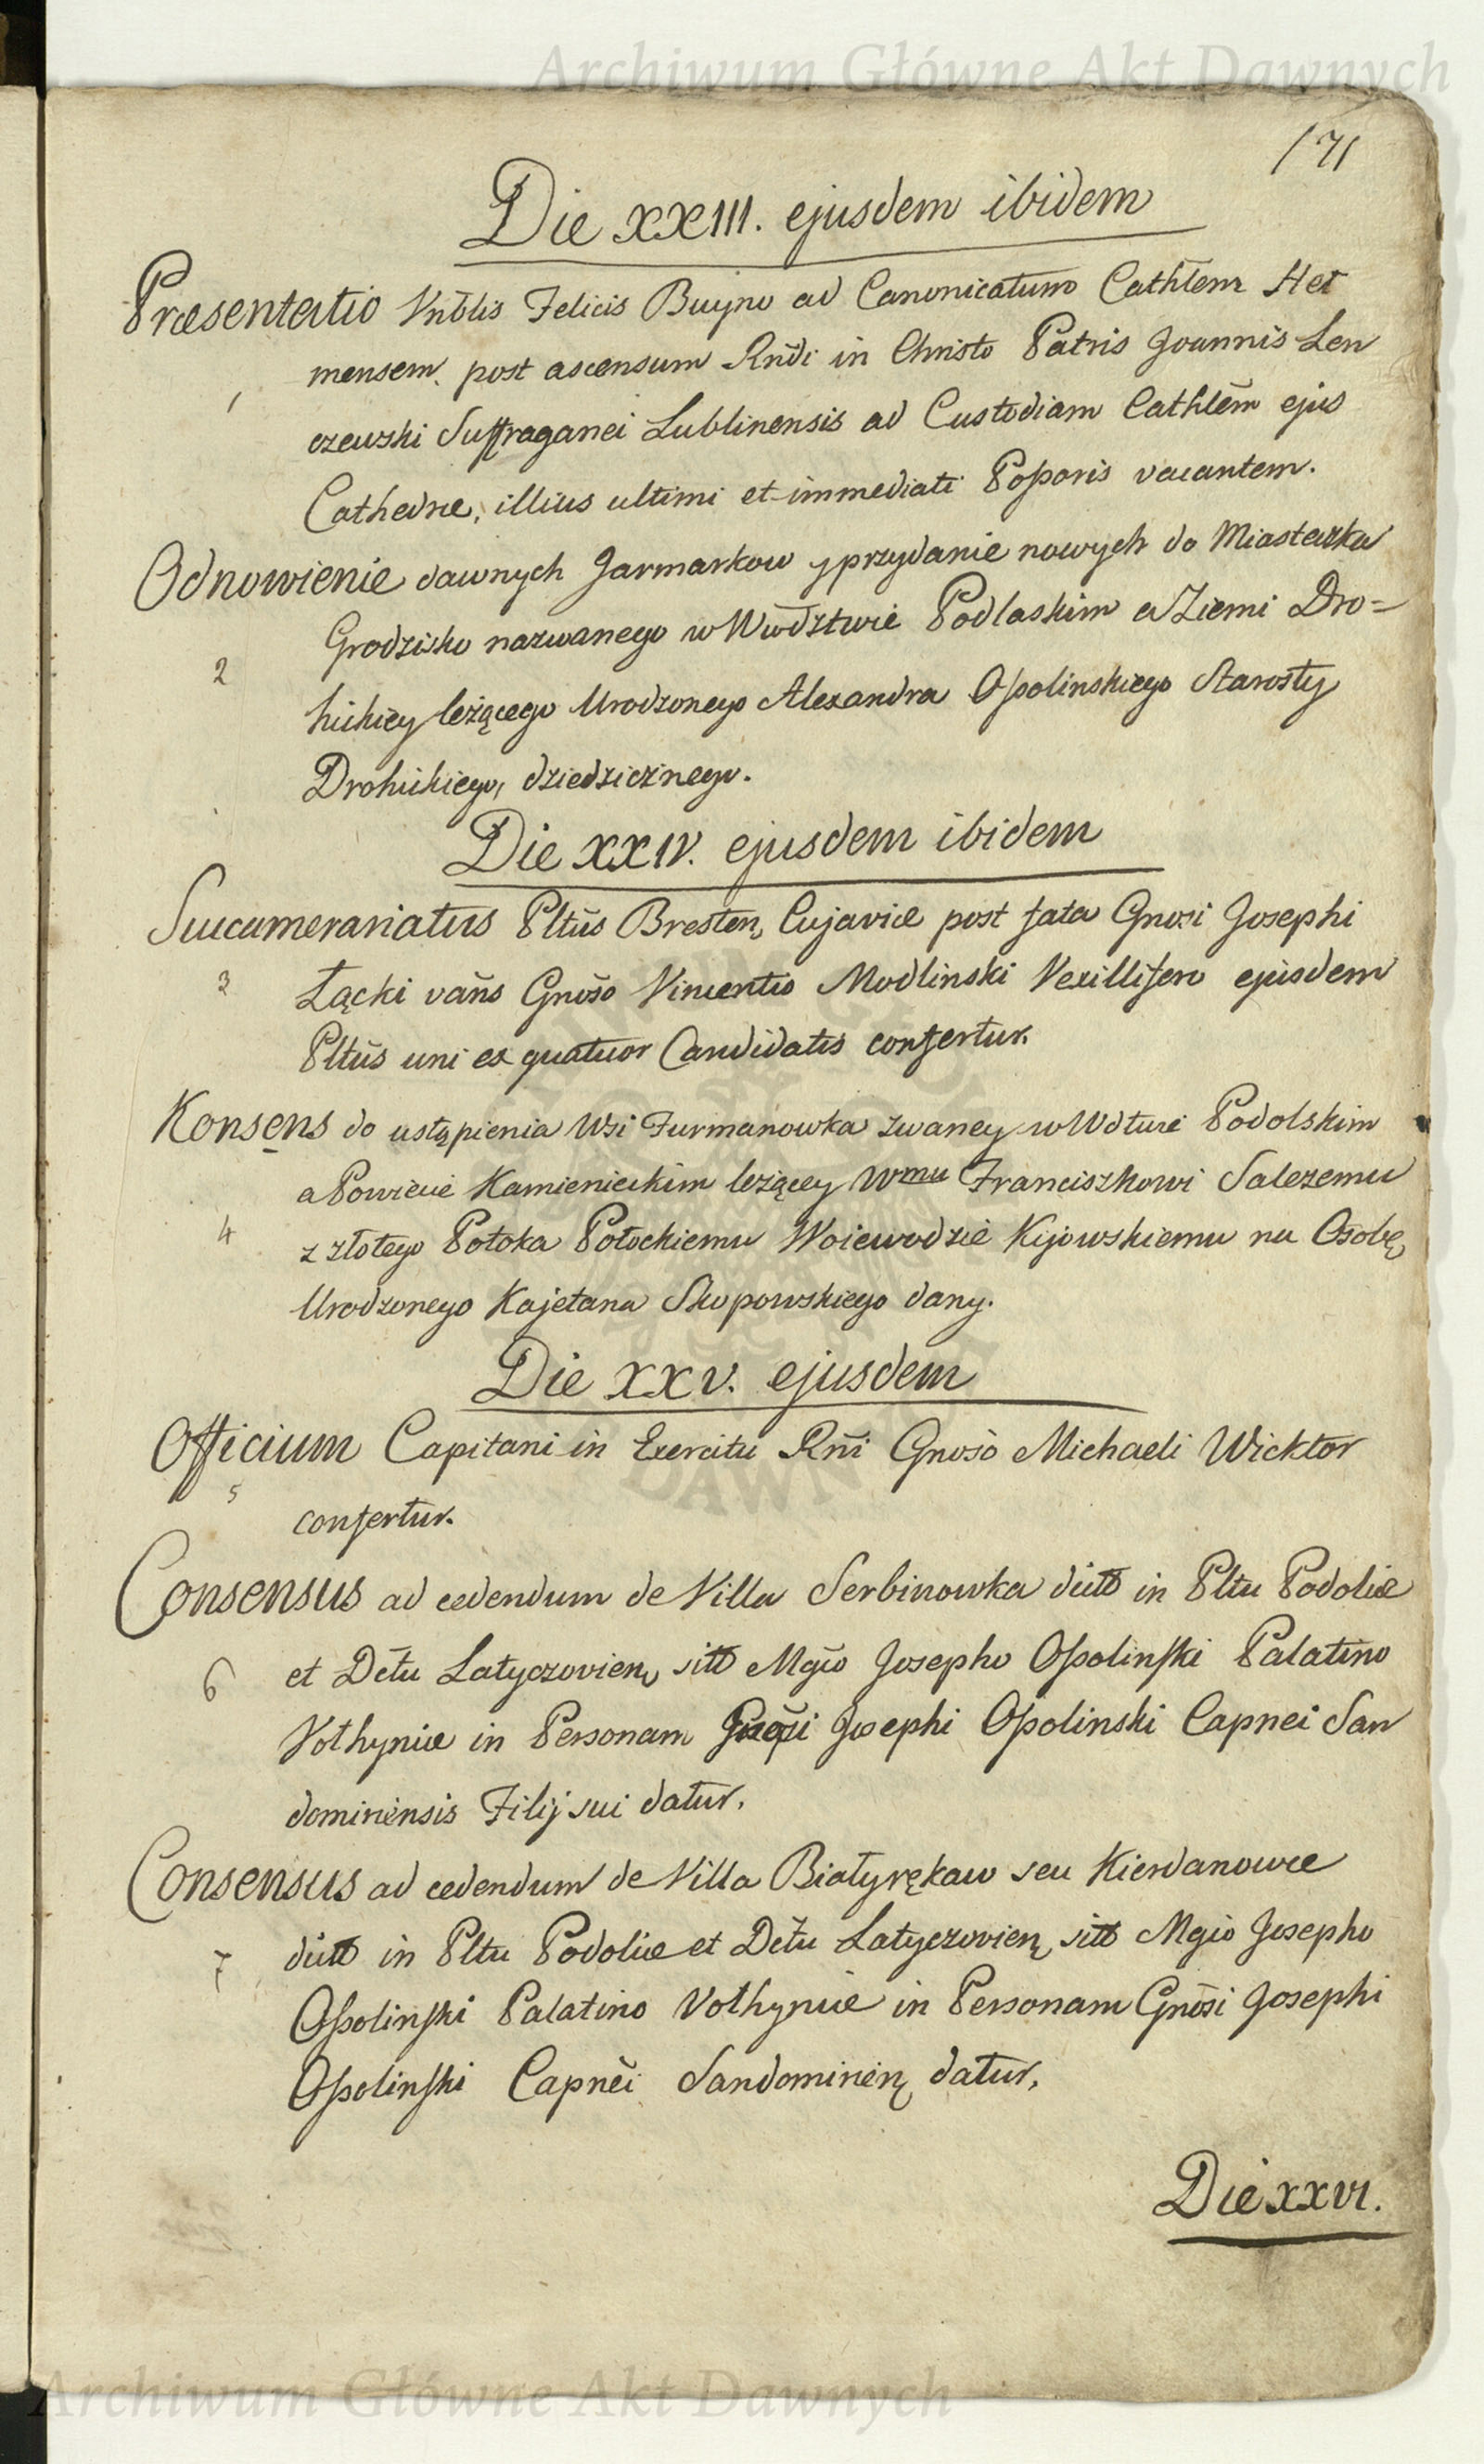 Archiwum Główne Akt Dawnych
171
Die XXIII. ejusdem ibidem
Præsentatio Vnblis Felicis Buyno ad Canonicatum Cathlem Hel
mensem, post ascensum Rndi in Christo Patris Joannis Len
czewski Suffraganei Lublinensis ad Custodiam Cathlem ejus
1
Cathedræ, illius ultimi et immediati Possoris vacantem.
Odnowienie dawnych Jarmarkow y przydanie nowych do Miasteczka
Grodzisko nazwanego w Wwdztwie Podlaskim a Ziemi Dro=
2
hickiey leżącego Urodzonego Alexandra Ossolinskiego Starosty
Drohickiego, dziedzicznego.
Die XXIV. ejusdem ibidem
Succamerariatus Pltus Bresten, Cujaviæ post fata Gnosi Josephi
3
Łącki vans Gnoso Vincentio Modlinski Vexillifero ejusdem
Pltus uni ex quatuor Candidatis confertur.
Konsens do ustąpienia Wsi Furmanowka zwaney w Wdtwie Podolskim
a Powiecie Kamienieckim leżącey Wmu Franciszkowi Salezemu
4
z złotego Potoka Potockiemu Woiewodzie Kijowskiemu na Osobę
Urodzonego Kajetana Skopowskiego dany.
Die XXV. ejusdem
Officium Capitani in Exercitu Rni Gnoso Michaeli Wicktor
5
confertur.
Consensus ad cedendum de Villa Serbinowka dicta in Pltu Podoliæ
6
et Dctu Latyczovien, sitta Mgco Josepho Ossolinski Palatino
Volhyniæ in Personam Gnosi Josephi Ossolinski Capnei San
domiriensis Filij sui datur.
Consensus ad cedendum de Villa Białyrękaw seu Kierdanowce
7
dicta in Pltu Podoliæ et Dctu Latyczovien, sitta Mgco Josepho
Ossolinski Palatino Volhyniæ in Personam Gnosi Josephi
Ossolinski Capnei Sandomirien, datur.
Die XXVI.
Archiwum Główne Akt Dawnych